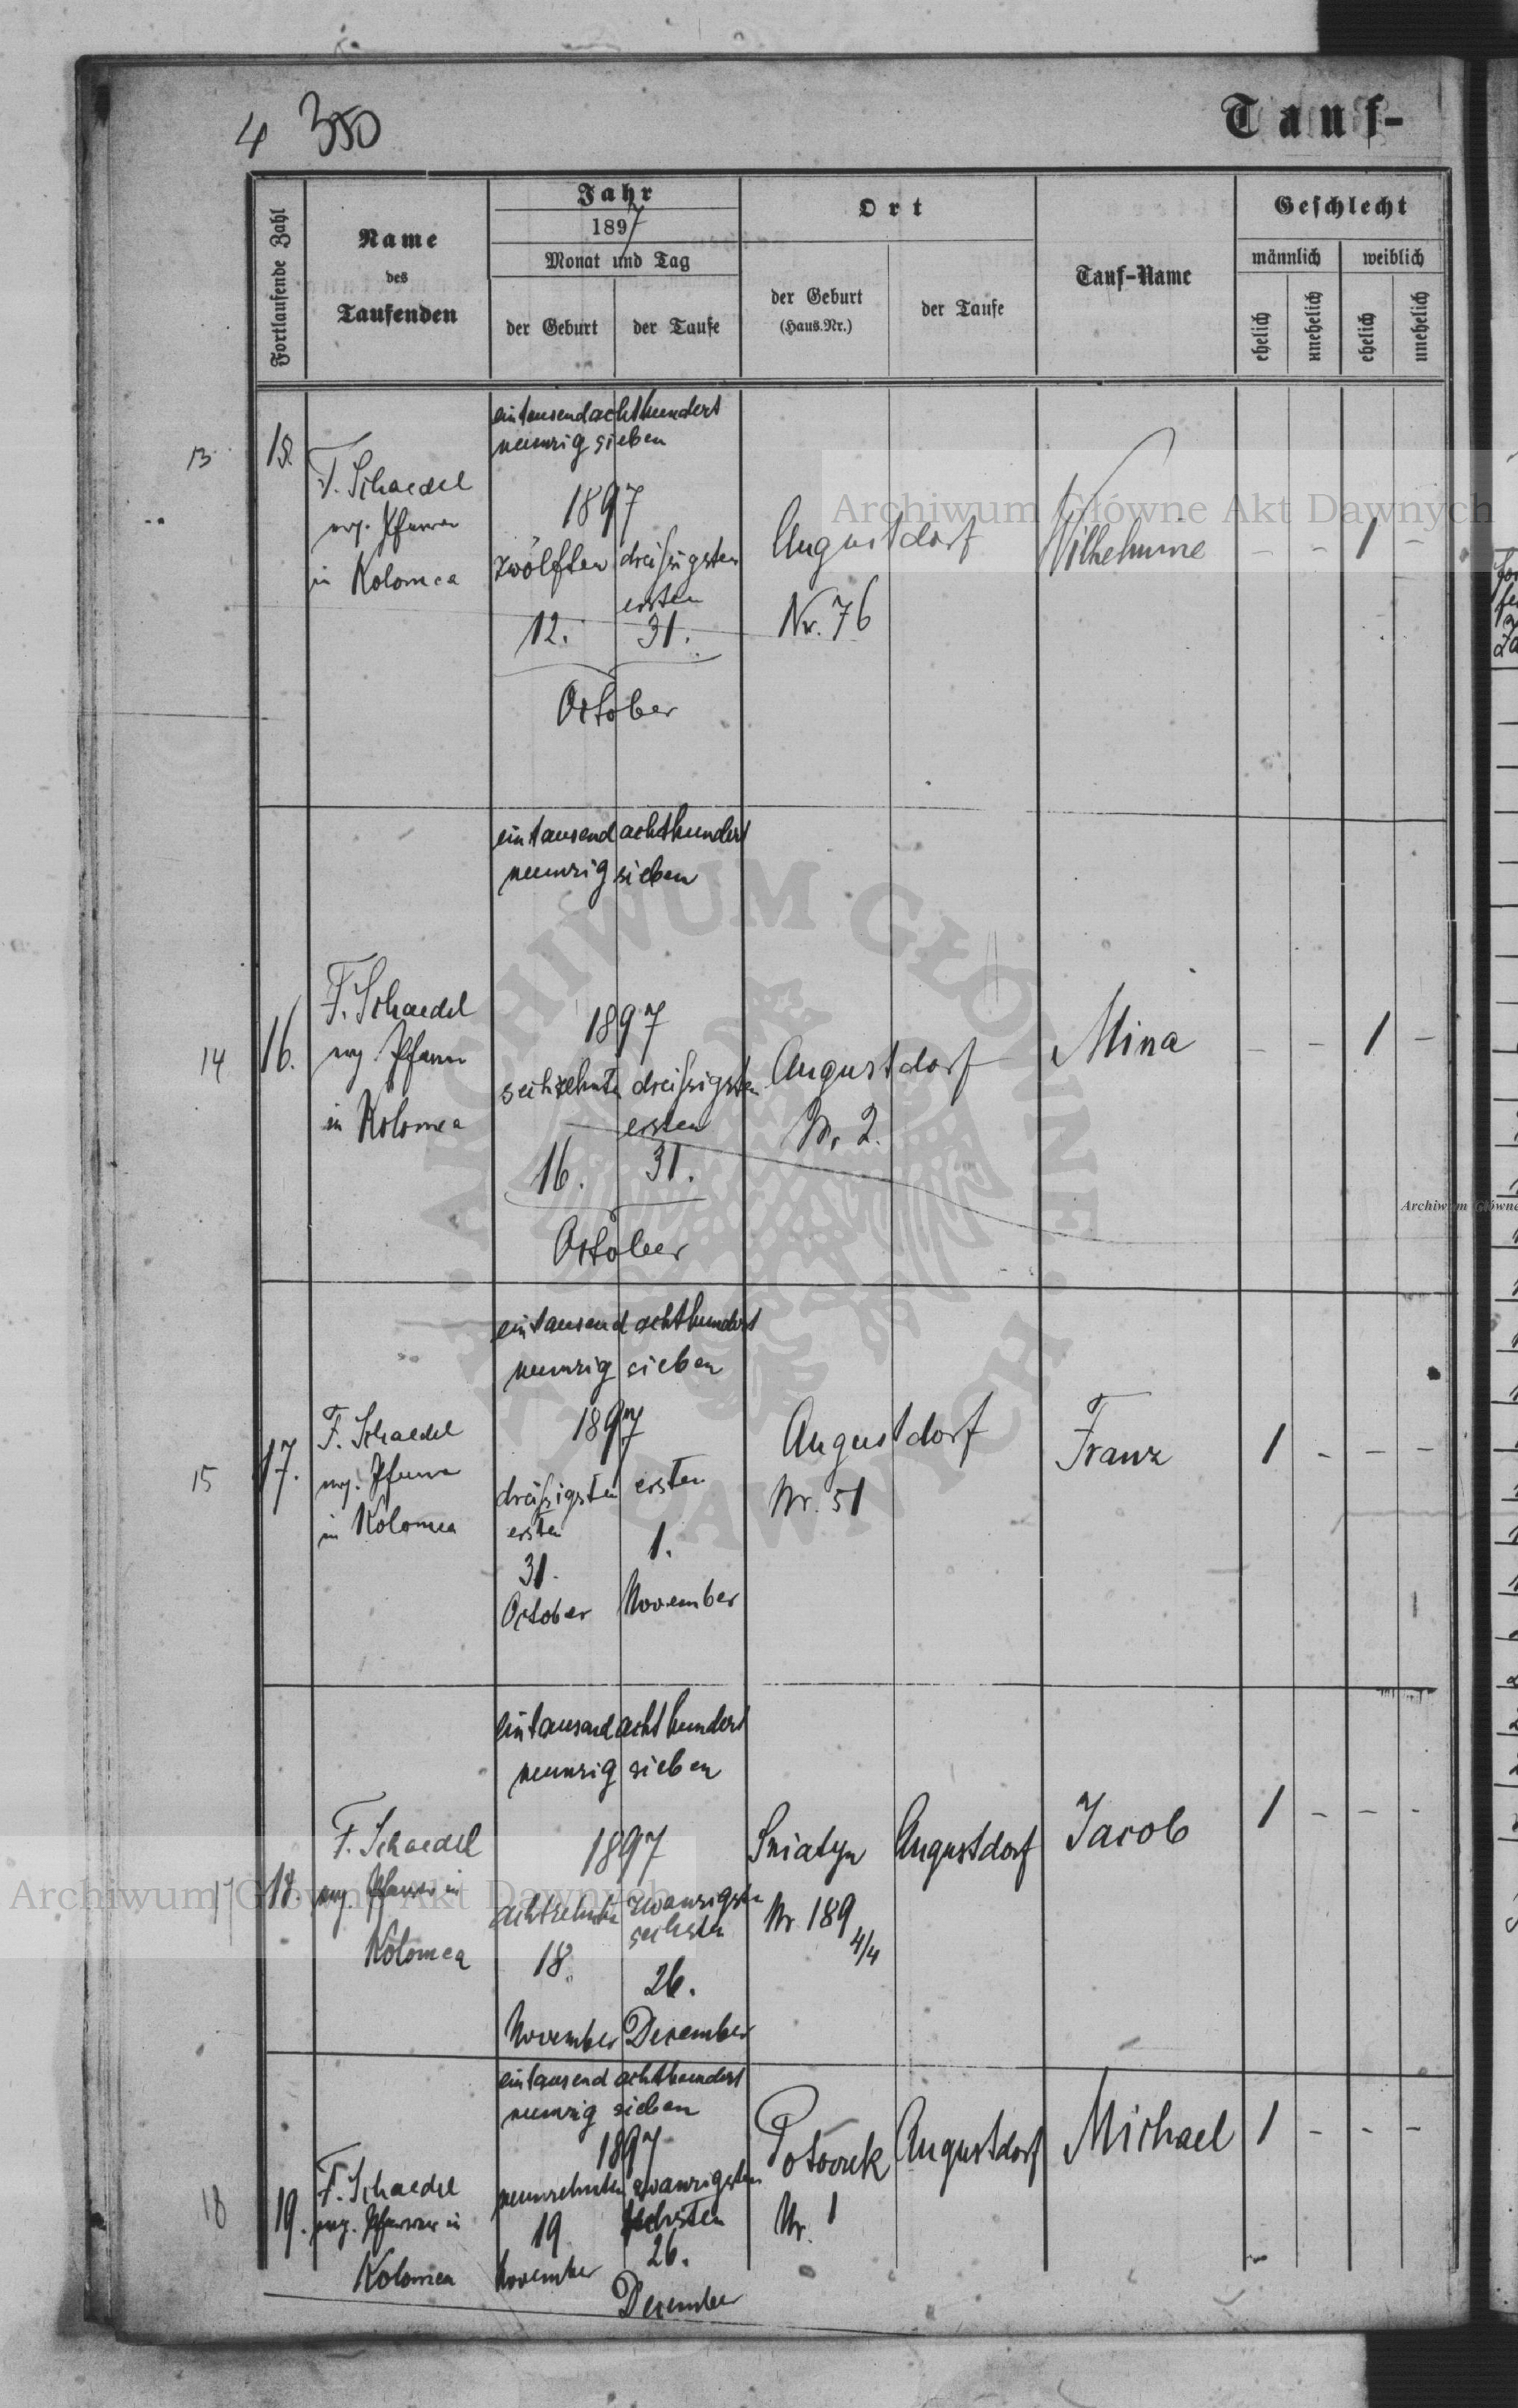 4 350
Tauf-
Fortlaufende Zahl
Name
des
Taufenden
Jahr
1897
Monat und Tag
der Geburt
der Taufe
Ort
der Geburt
(Haus.Nr.)
der Taufe
Tauf-Name
Geschlecht
männlich
weiblich
ehelich
unehelich
ehelich
unehelich
eintausendachthundert
neunzig sieben
13
F. Schaedel
ev. Pfarrer
in Kolomea
1897
zwölften dreißigsten
ersten
12. 31.
October
Augustdorf
Nr. 76
Wilhelmine
- - 1 -
eintausend achthundert
neunzig sieben
14 16.
F. Schaedel
ev. Pfarrer
in Kolomea
1897
sechzehnten dreißigsten
ersten
16. 31.
October
Augustdorf
Nr. 2.
Mina
- - 1 -
eintausend achthundert
neunzig sieben
15 17.
F. Schaedel
ev. Pfarrer
in Kolomea
1897
dreißigsten ersten
ersten
31. 1.
October November
Augustdorf
Nr. 51
Franz
1 - - -
eintausend achthundert
neunzig sieben
17 18.
F. Schaedel
ev. Pfarrer in
Kolomea
1897
achtzehnten zwanzigsten
sechsten
18. 26.
November December
Sniatyn Augustdorf
Nr 189 4/4
Jacob
1 - - -
eintausend achthundert
neunzig sieben
18 19.
F. Schaedel
ev. Pfarrer in
Kolomea
1897
neunzehnten zwanzigsten
sechsten
19 26.
November December
Potoczek Augustdorf
Nr. 1
Michael
1 - - -
Archiwum Główne Akt Dawnych
ARCHIWUM GŁÓWNE AKT DAWNYCH
Archiwum Główne
Archiwum Główne Akt Dawnych